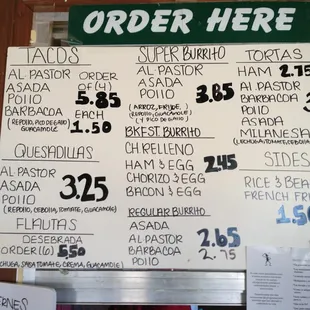 ORDER HERE
TACOS
AL PASTOR ORDER
ASADA OF (4)
POLLO 5.85
BARBACOA EACH
(REPOLLO, PICO DE GALLO
GUACAMOLE) 1.50
QUESADILLAS
AL PASTOR
ASADA 3.25
POLLO
(REPOLLO, CEBOLLA, TOMATE, GUACAMOLE)
FLAUTAS
DESEBRADA
ORDER (6) 5.50
CHUGA, TOMATE, CREMA, GUACAMOLE)
SUPER BURRITO
AL PASTOR
ASADA 3.85
POLLO
(ARROZ, FRIJOLE,
Y PICO DE GALLO)
BKFST. BURRITO
CH RELLENO
HAM & EGG 2.45
CHORIZO & EGG
BACON & EGG
REGULAR BURRITO
ASADA
AL PASTOR 2.65
BARBACOA 2.75
POLLO
TORTAS
HAM 2.75
AL PASTOR
BARBACOA 3
POLLO
ASADA
MILANESA
SIDES
RICE & BEA
FRENCH FRI
1.50
ERNES